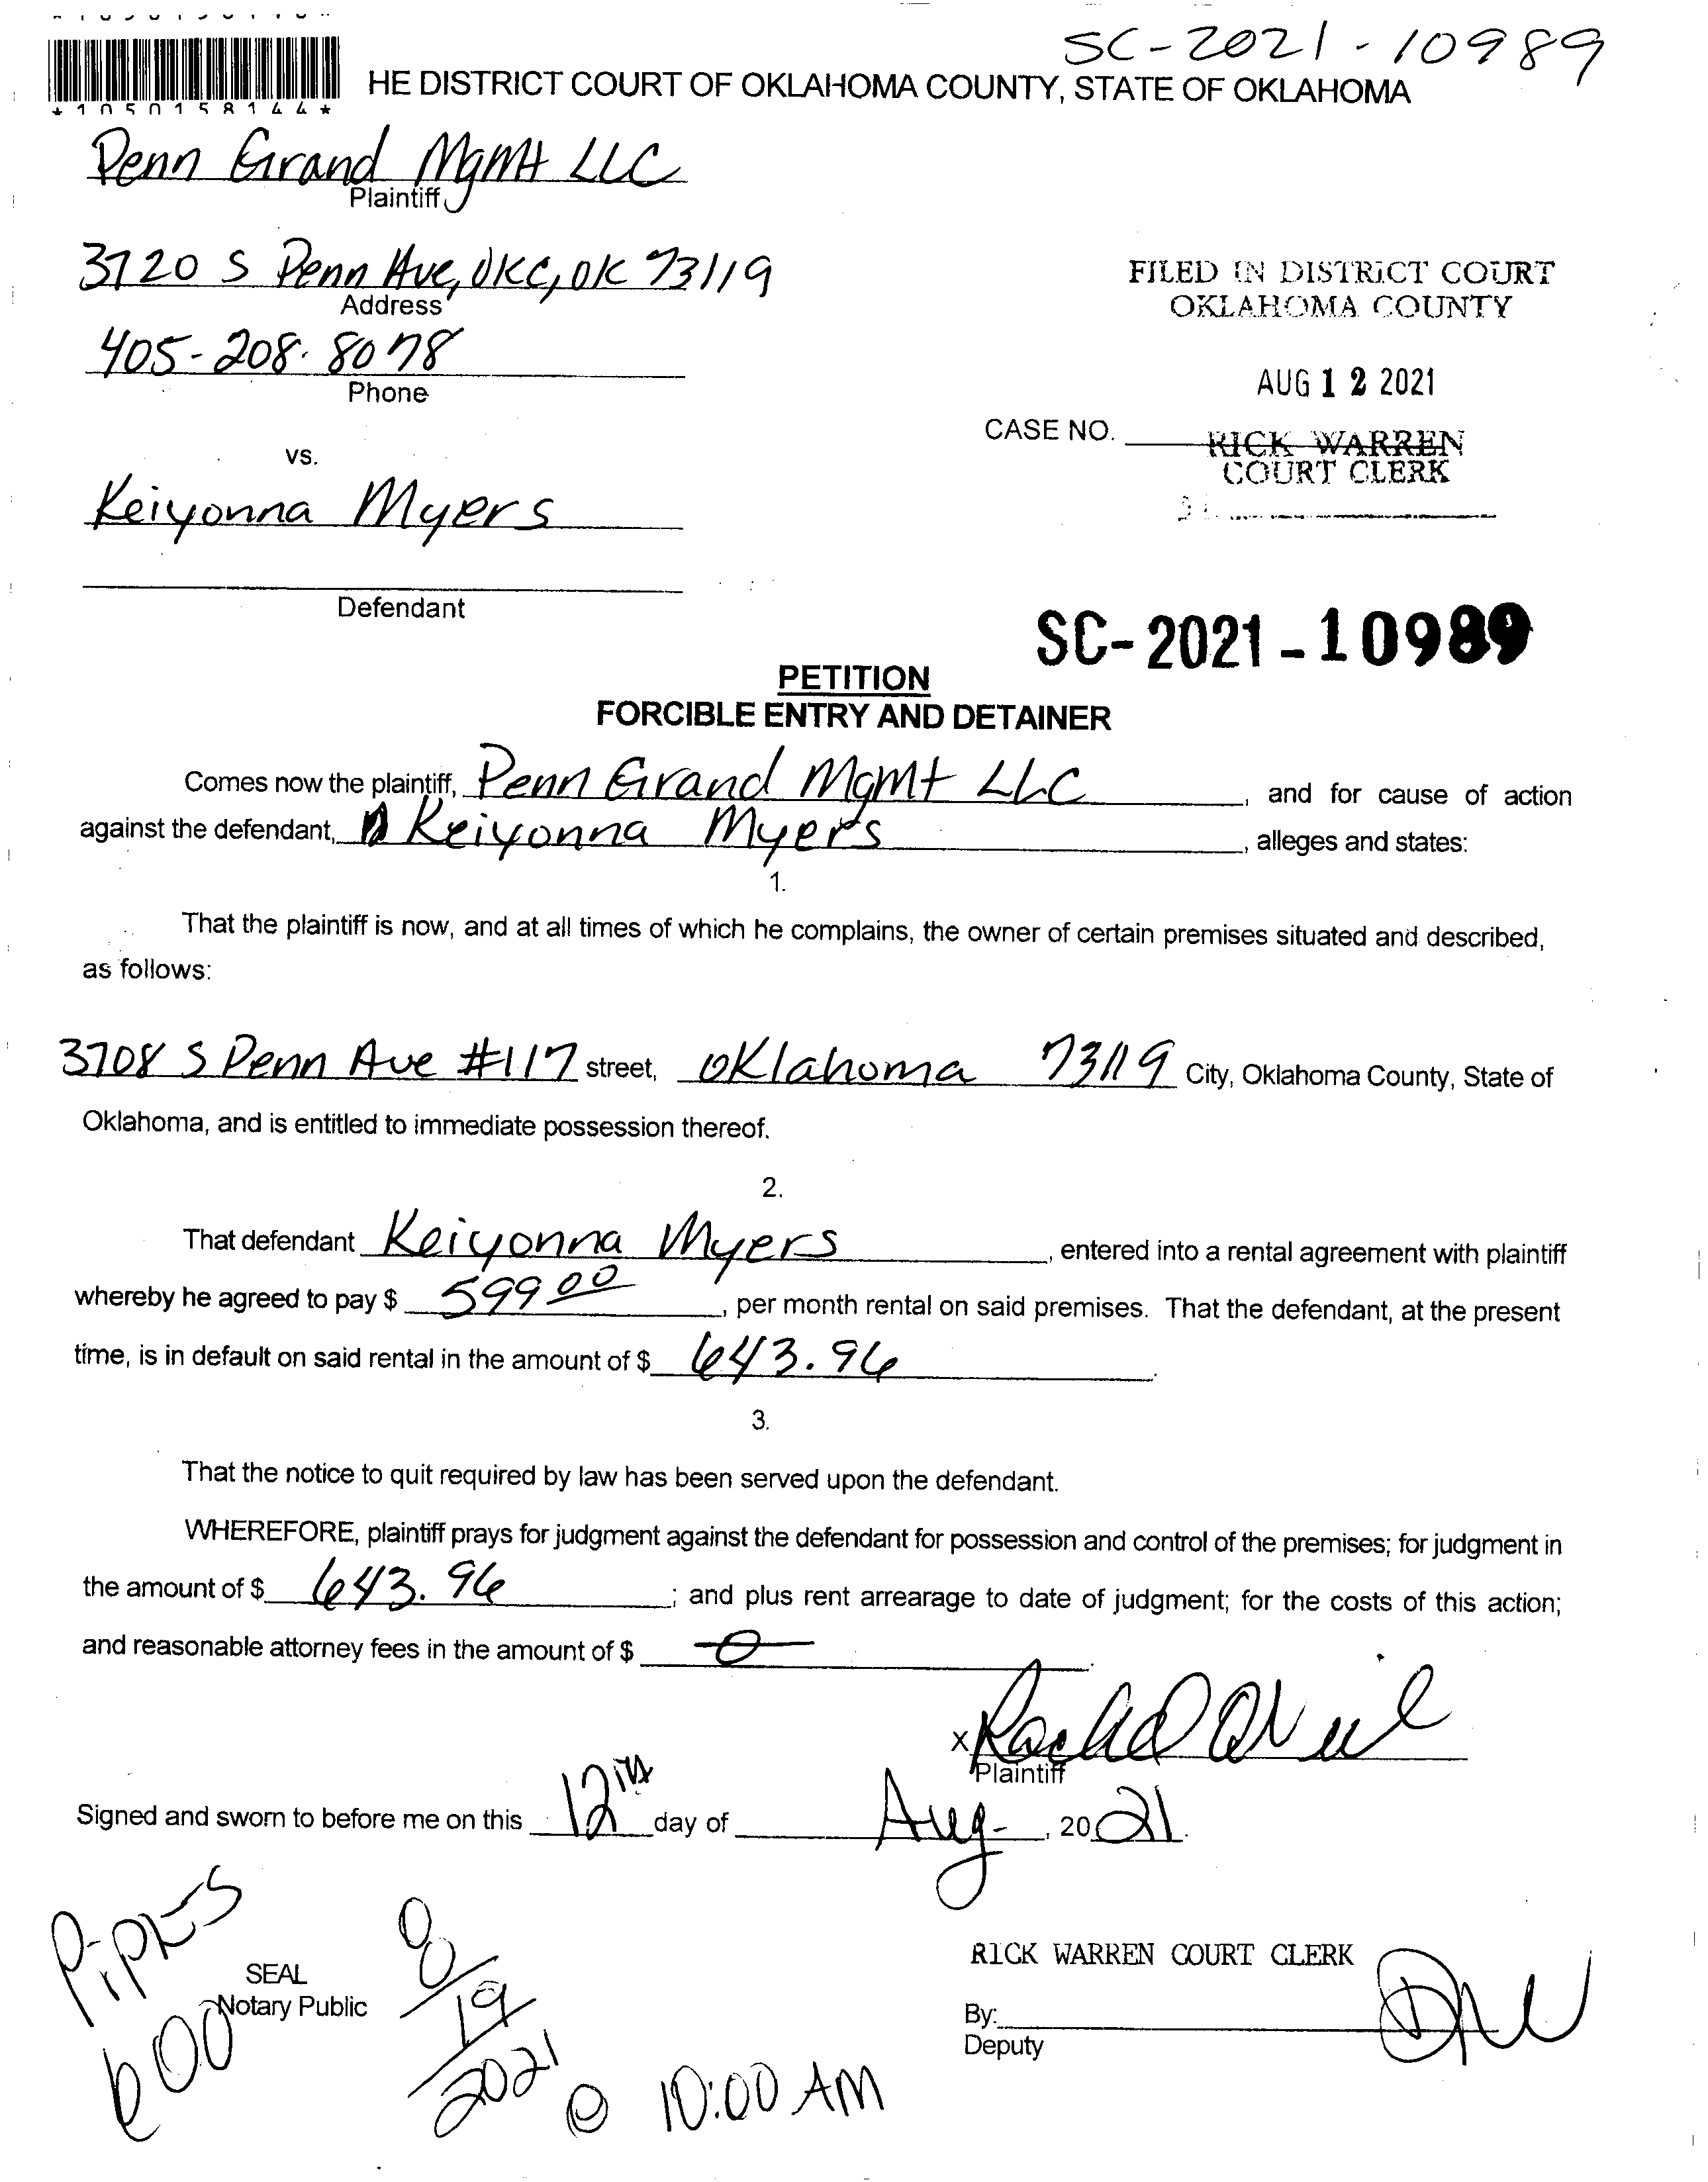 SC-2021-10989
HE DISTRICT COURT OF OKLAHOMA COUNTY, STATE OF OKLAHOMA
*1050158144*
Penn Grand Mgmt LLC
Plaintiff
3720 S Penn Ave, OKC, OK 73119
Address
FILED IN DISTRICT COURT
OKLAHOMA COUNTY
405-208-8078
Phone
AUG 12 2021
CASE NO.
RICK WARREN
COURT CLERK
vs.
Keiyonna Myers
Defendant
SC-2021-10989
PETITION
FORCIBLE ENTRY AND DETAINER
Comes now the plaintiff, Penn Grand Mgmt LLC, and for cause of action
against the defendant, Keiyonna Myers, alleges and states:
1.
That the plaintiff is now, and at all times of which he complains, the owner of certain premises situated and described,
as follows:
3708 S Penn Ave #117 street, Oklahoma 73119 City, Oklahoma County, State of
Oklahoma, and is entitled to immediate possession thereof.
2.
That defendant Keiyonna Myers, entered into a rental agreement with plaintiff
whereby he agreed to pay $ 599 00, per month rental on said premises. That the defendant, at the present
time, is in default on said rental in the amount of $ 643.96.
3.
That the notice to quit required by law has been served upon the defendant.
WHEREFORE, plaintiff prays for judgment against the defendant for possession and control of the premises; for judgment in
the amount of $ 643.96; and plus rent arrearage to date of judgment; for the costs of this action;
and reasonable attorney fees in the amount of $ 0.
x Rachel O'Neil
Plaintiff
Signed and sworn to before me on this 12th day of Aug, 2021.
Pipkes
600
SEAL
Notary Public
8/19/2021 @ 10:00 AM
RICK WARREN COURT CLERK
By:
Deputy